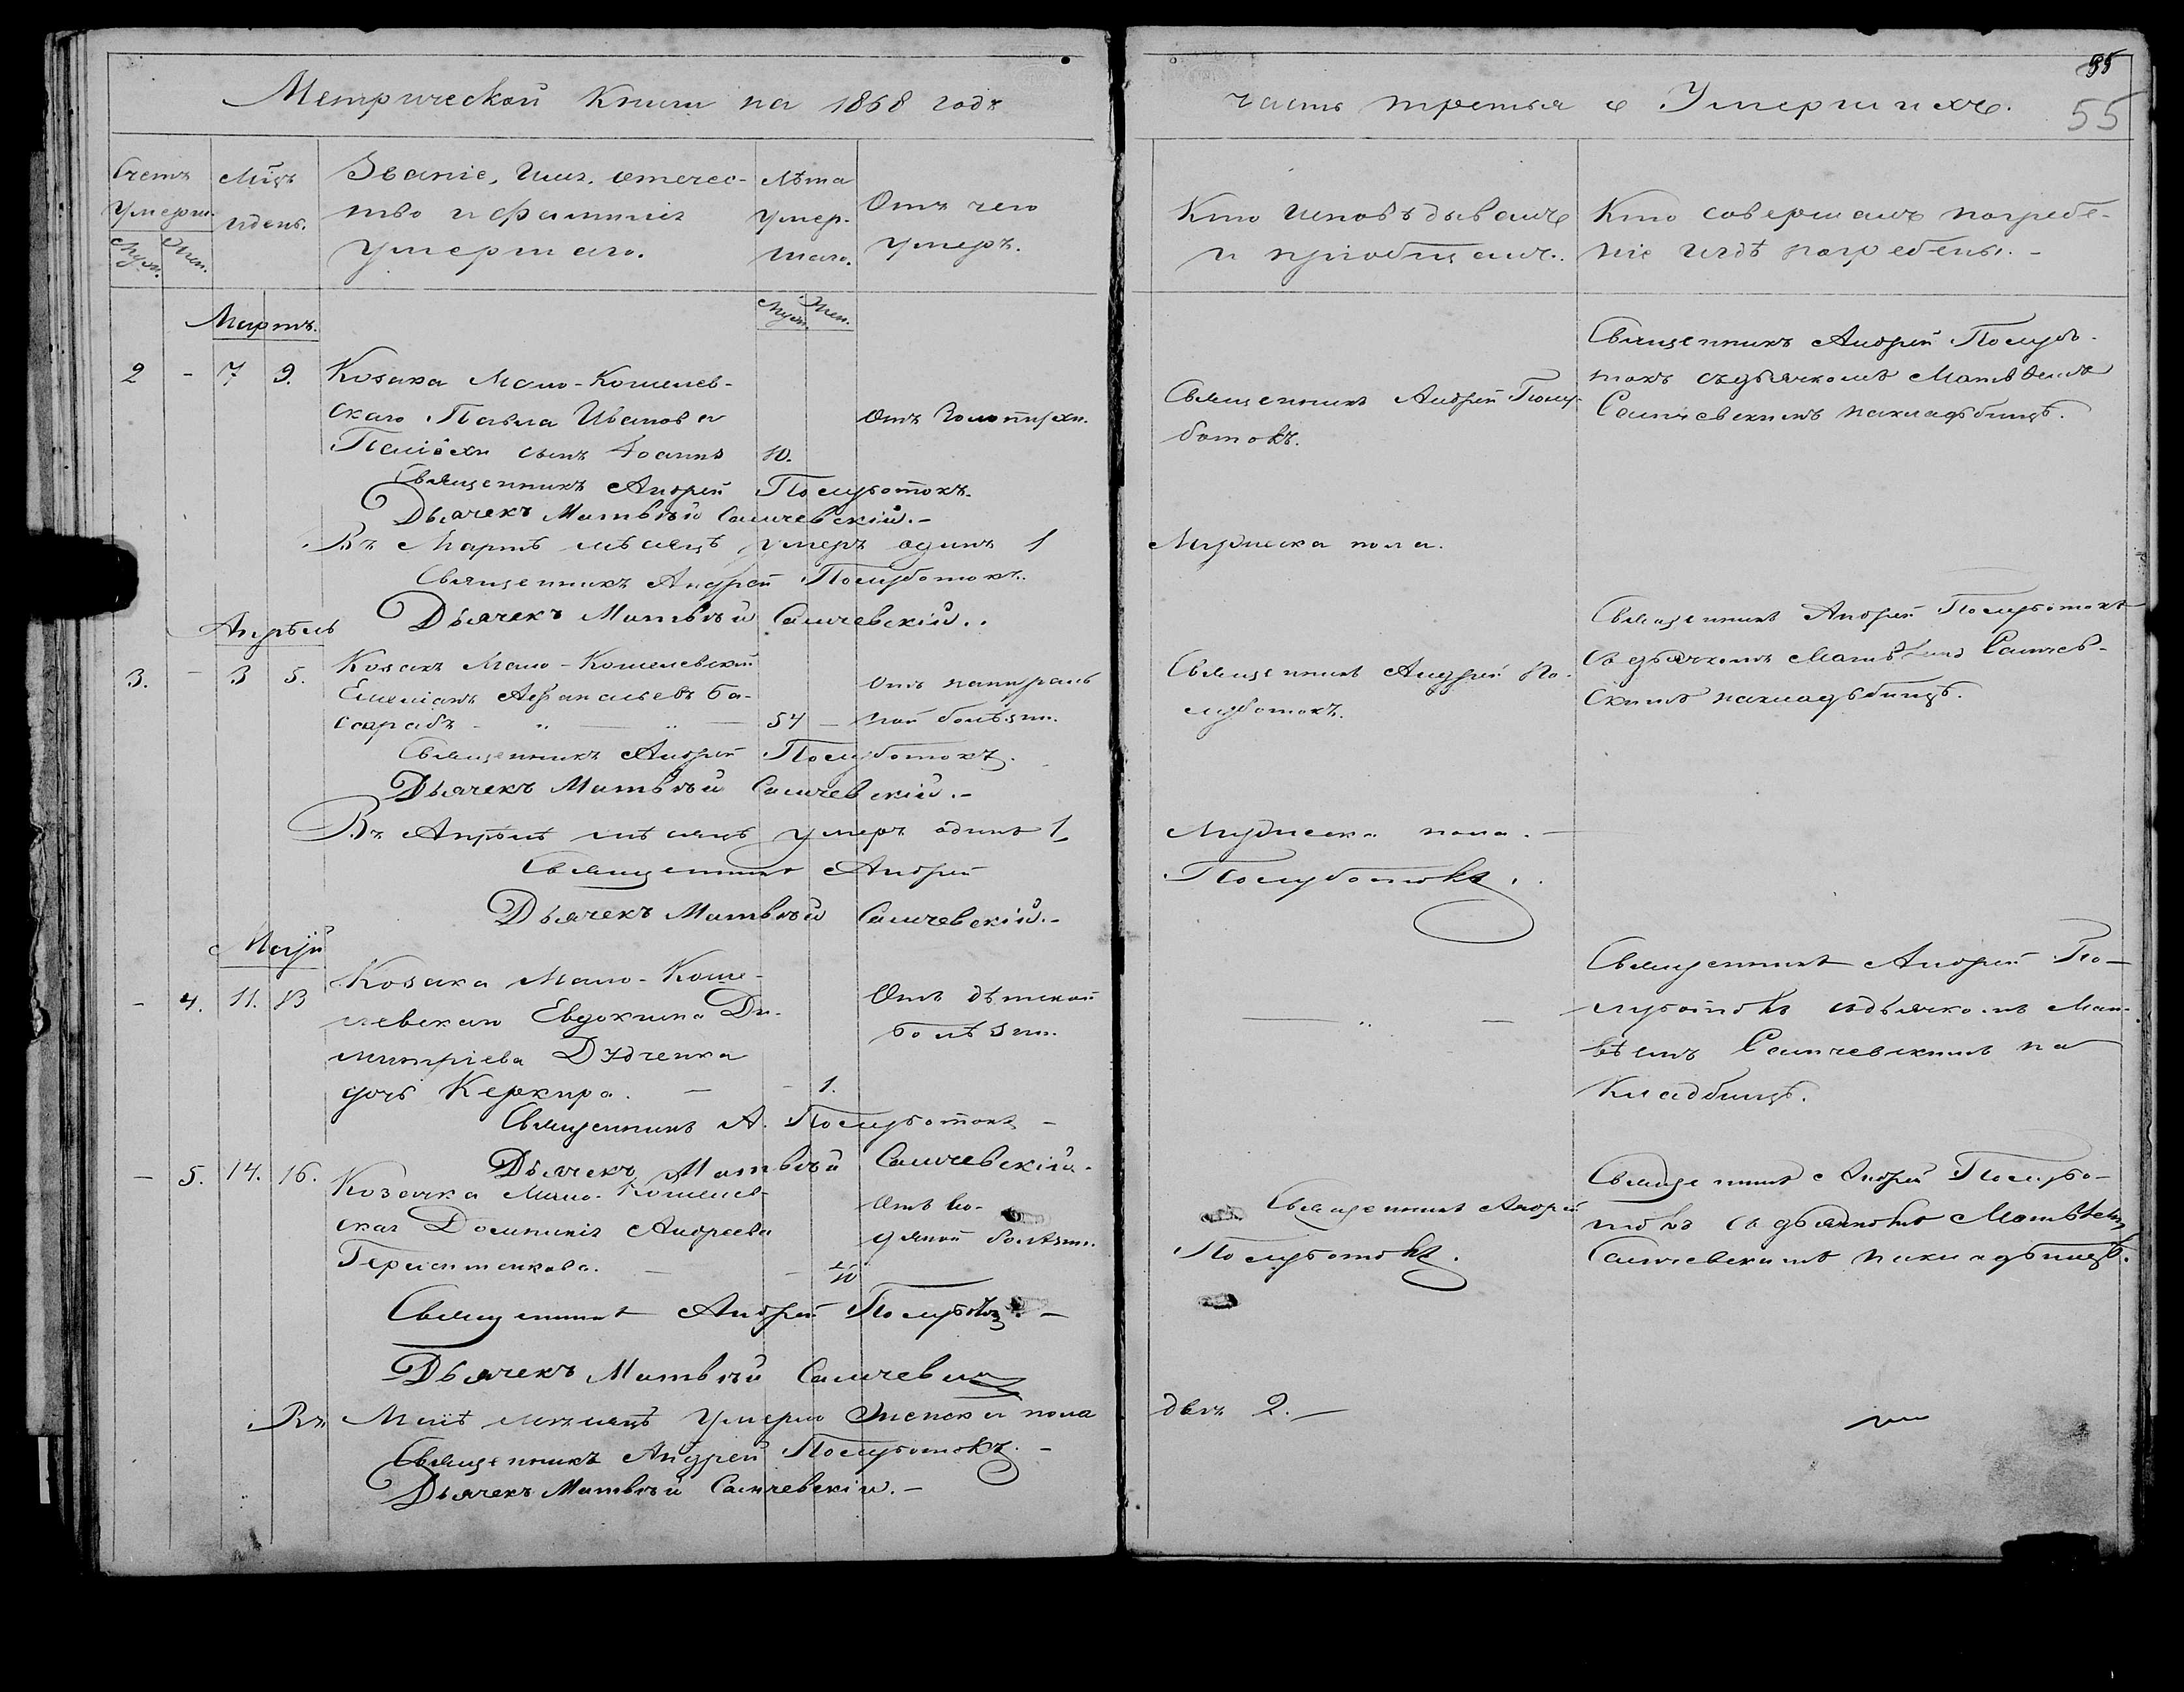 Метрической Книги на 1868 годъ
часть третья о Умершихъ.
55
55
Счетъ умерш.
Муж. Жен.
Мц̃ъ и день.
Званіе, имя, отечес-
тво и фамилія
умершаго.
Лѣта
умер-
шаго.
Муж. Жен.
Отъ чего
умеръ.
Кто исповѣдывалъ
и пріобщалъ.
Кто совершалъ погребе-
ніе и гдѣ погребены.
Мартъ.
2 - 7 9.
Козака Мало-Кошелев-
скаго Павла Иванова
сынъ Іоаннъ 10.
Отъ Золотухи.
Священникъ Андрей Полу-
ботокъ.
Священникъ Андрей Полубо-
токъ съ дьячкомъ Матвѣемъ
Самчевскимъ на кладбищѣ.
Священникъ Андрей Полуботокъ.
Дьячекъ Матвѣй Самчевскій.-
Въ Мартѣ мѣсяцѣ умеръ одинъ 1
Мужеска пола.
Священникъ Андрей Полуботокъ.
Дьячекъ Матвѣй Самчевскій.
Апрѣль
3. - 3 5.
Козакъ Мало-Кошелевскій
Емеліанъ Афанасьевъ Ба-
сарабъ - 54 -
Отъ натураль
ной болѣзни.
Священникъ Андрей По-
луботокъ.
Священникъ Андрей Полуботокъ
съ дьячкомъ Матвѣемъ Самчев-
скимъ на кладбищѣ.
Священникъ Андрей Полуботокъ.
Дьячекъ Матвѣй Самчевскій.-
Въ Апрѣлѣ мѣсяцѣ умеръ одинъ 1
Мужеска пола.-
Священникъ Андрей
Полуботокъ.
Дьячекъ Матвѣй Самчевскій.-
Маій
- 4. 11. 13
Козака Мало-Коше-
левскаго Евдокима Ди-
митріева Дудченка
дочь Керкира. - - 1.
Отъ дѣтской
болѣзни.
Священникъ Андрей По-
луботокъ съ дьячкомъ Мат-
вѣемъ Самчевскимъ на
кладбищѣ.
Священникъ А. Полуботокъ -
Дьячекъ Матвѣй Самчевскій.
- 5. 14. 16.
Козачка Мало-Кошелев-
ская Домникія Андреева
Отъ во-
дяной болѣзни.
Священникъ Андрей
Полуботокъ.
Священникъ Андрей Полубо-
токъ съ дьячкомъ Матвѣемъ
Самчевскимъ на кладбищѣ.
Священникъ Андрей
Дьячекъ Матвѣй
Въ Маіѣ мѣсяцѣ умерло Женска пола
двѣ 2.-
Священникъ Андрей Полуботокъ.-
Дьячекъ Матвѣй Самчевскій.-